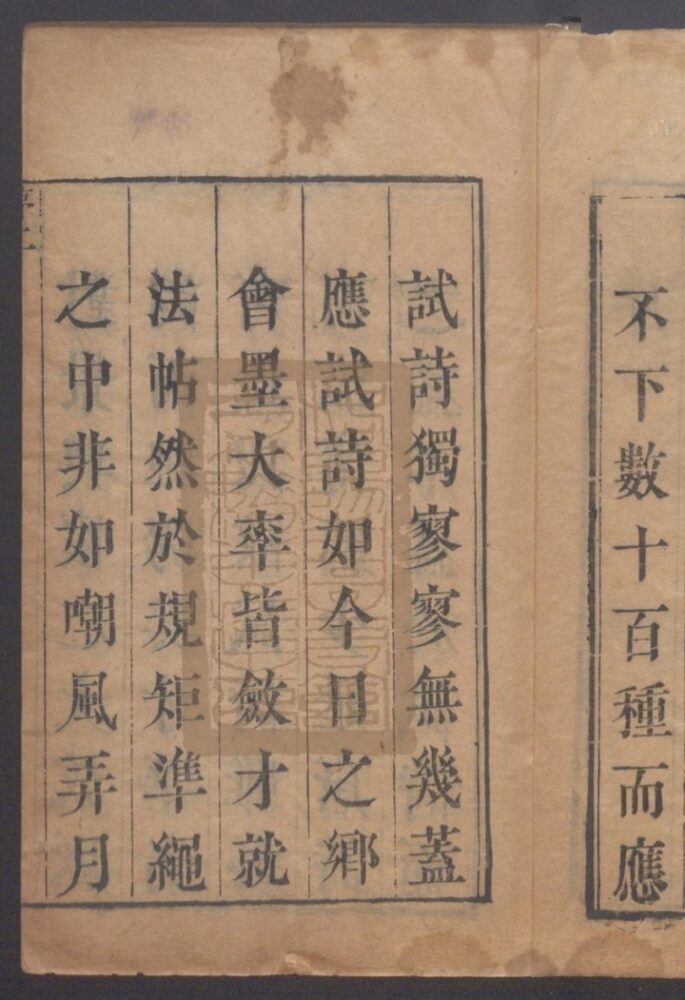 不下數十百種而應
試詩獨寥寥無幾蓋
應試詩如今日之鄉
會墨大率皆斂才就
法帖然於規矩準繩
之中非如嘲風弄月